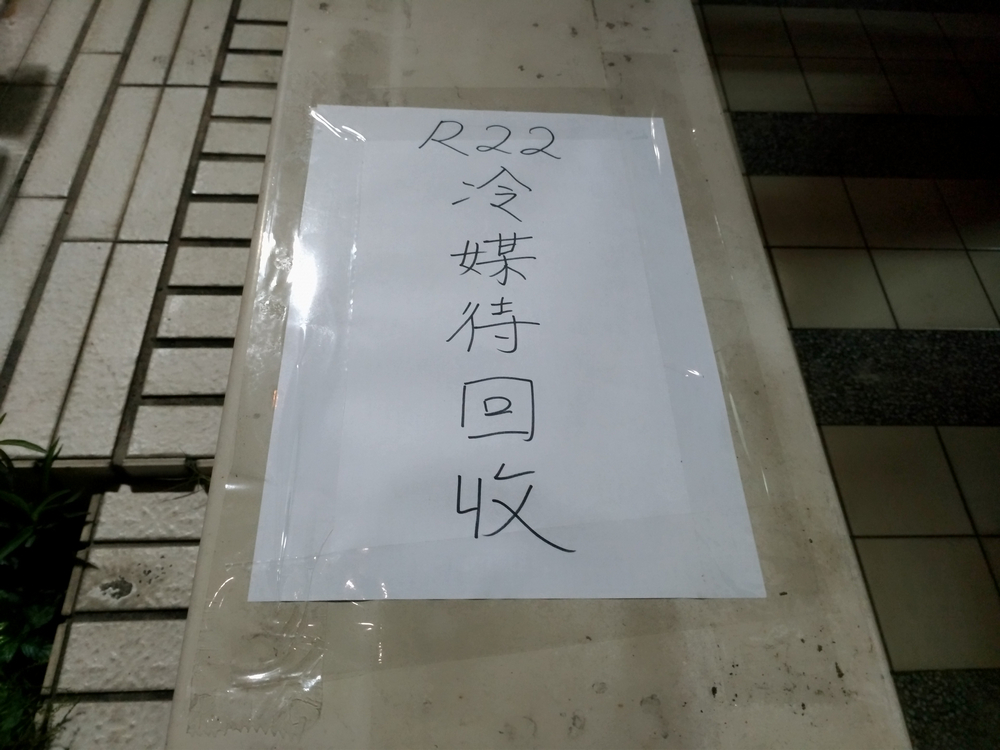 R22
冷媒待回收